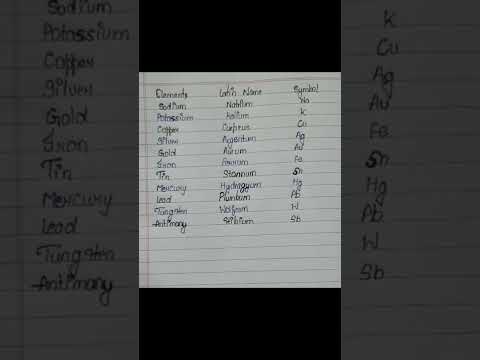 Sodium
Potassium
Copper
Silver
Gold
Iron
Tin
Mercury
Lead
Tungsten
Antimany
Elements Latin Name Symbol
Sodium Natium Na
Potassium Kalium K
Copper Curprus Cu
Silver Argentum Ag
Gold Aurum Au
Iron Ferrum Fe
Tin Stannum Sn
Mercury Hydragyum Hg
Lead Plumbum Pb
Tungsten Wolfram W
Antimany Stibium Sb
K
Cu
Ag
Au
Fe
Sn
Hg
Pb
W
Sb